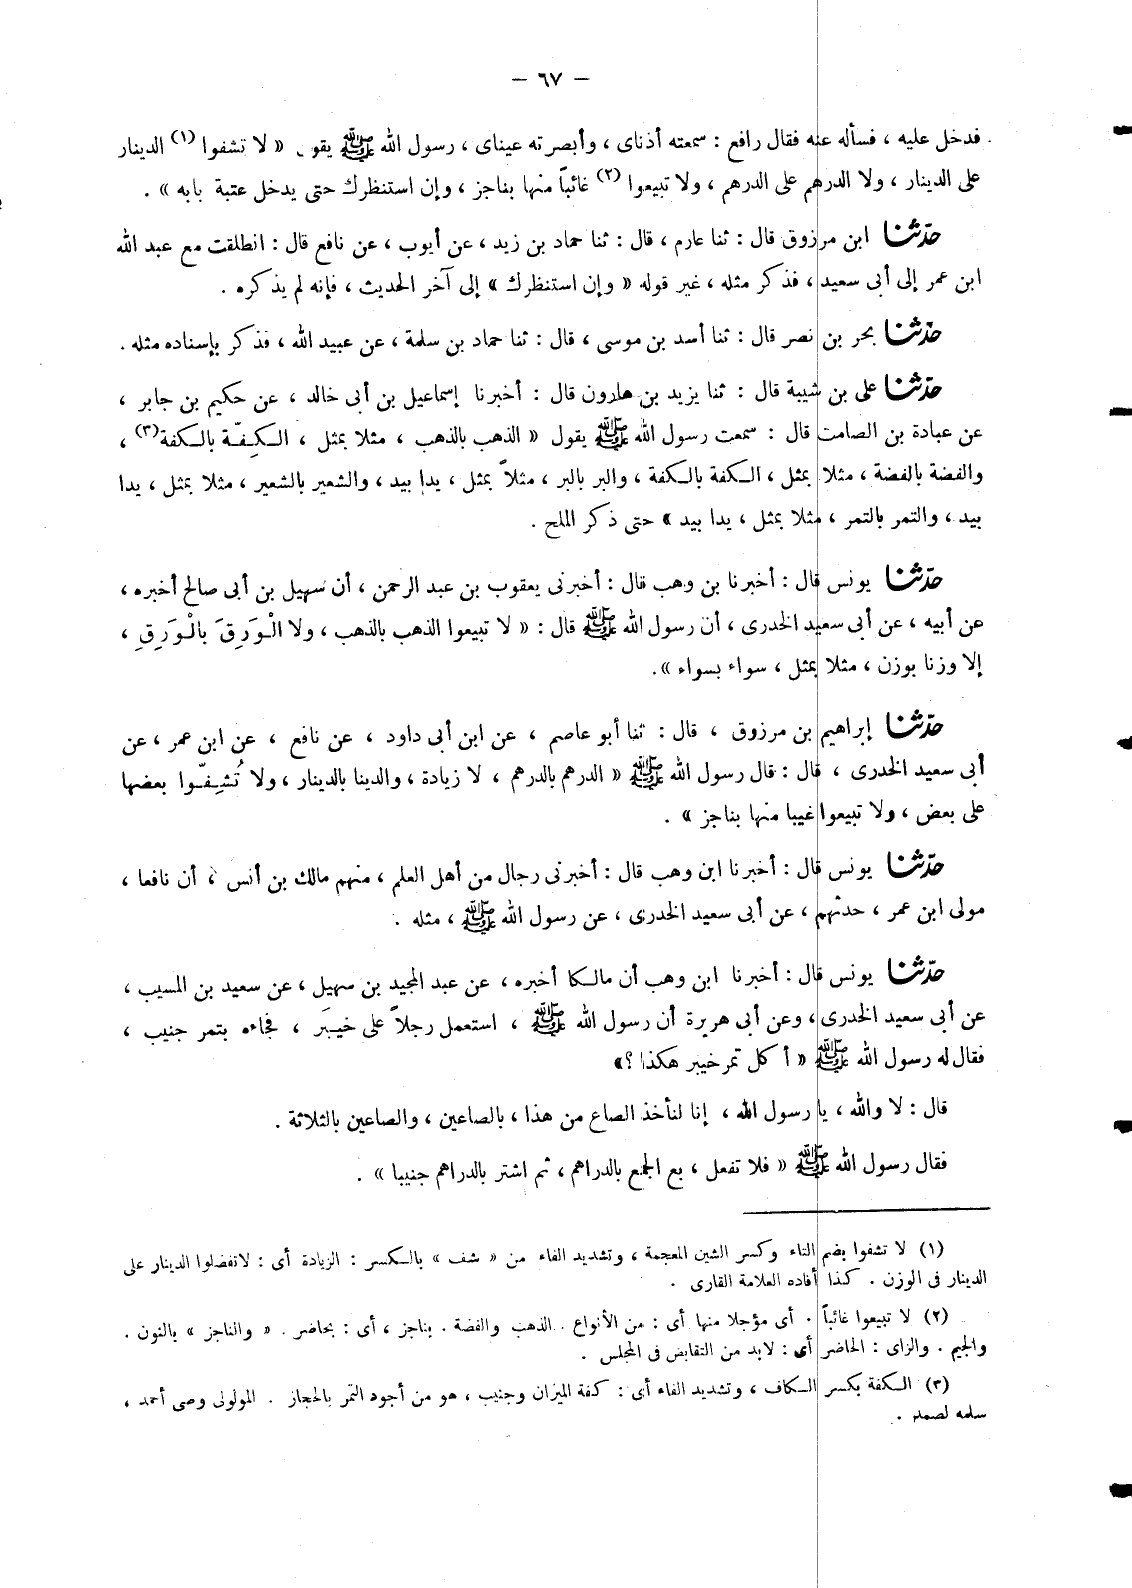 — ٦٧ —
فدخل عليه ، فسأله عنه فقال رافع : سمعته أذناى ، وأبصرته عيناى ، رسول الله ﷺ يقول « لا تشفوا (١) الدينار
على الدينار ، ولا الدرهم على الدرهم ، ولا تبيعوا (٢) غائباً منها بناجز ، وإن استنظرك حتى يدخل عتبة بابه » .
حدّثنا ابن مرزوق قال : ثنا عارم ، قال : ثنا حماد بن زيد ، عن أيوب ، عن نافع قال : انطلقت مع عبد الله
ابن عمر إلى أبى سعيد ، فذكر مثله ، غير قوله « وإن استنظرك » إلى آخر الحديث ، فإنه لم يذكره .
حدّثنا بحر بن نصر قال : ثنا أسد بن موسى ، قال : ثنا حماد بن سلمة ، عن عبيد الله ، فذكر بإسناده مثله .
حدّثنا على بن شيبة قال : ثنا يزيد بن هارون قال : أخبرنا إسماعيل بن أبى خالد ، عن حكيم بن جابر ،
عن عبادة بن الصامت قال : سمعت رسول الله ﷺ يقول « الذهب بالذهب ، مثلا بمثل ، الكِفّة بالكفة(٣) ،
والفضة بالفضة ، مثلا بمثل ، الكفة بالكفة ، والبر بالبر ، مثلاً بمثل ، يدا بيد ، والشعير بالشعير ، مثلا بمثل ، يدا
بيد ، والتمر بالتمر ، مثلا بمثل ، يدا بيد » حتى ذكر الملح .
حدّثنا يونس قال : أخبرنا بن وهب قال : أخبرنى يعقوب بن عبد الرحمن ، أن سهيل بن أبى صالح أخبره ،
عن أبيه ، عن أبى سعيد الخدرى ، أن رسول الله ﷺ قال : « لا تبيعوا الذهب بالذهب ، ولا الْوَرِقَ بالْوَرِقِ ،
إلا وزنا بوزن ، مثلا بمثل ، سواء بسواء » .
حدّثنا إبراهيم بن مرزوق ، قال : ثنا أبو عاصم ، عن ابن أبى داود ، عن نافع ، عن ابن عمر ، عن
أبى سعيد الخدرى ، قال : قال رسول الله ﷺ « الدرهم بالدرهم ، لا زيادة ، والدينا بالدينار ، ولا تُشِفّوا بعضها
على بعض ، ولا تبيعوا غيبا منها بناجز » .
حدّثنا يونس قال : أخبرنا ابن وهب قال : أخبرنى رجال من أهل العلم ، منهم مالك بن أنس ، أن نافعا ،
مولى ابن عمر ، حدثهم ، عن أبى سعيد الخدرى ، عن رسول الله ﷺ ، مثله .
حدّثنا يونس قال : أخبرنا ابن وهب أن مالكا أخبره ، عن عبد المجيد بن سهيل ، عن سعيد بن المسيب ،
عن أبى سعيد الخدرى ، وعن أبى هريرة أن رسول الله ﷺ ، استعمل رجلاً على خيبَر ، فجاءه بتمر جنيب ،
فقال له رسول الله ﷺ « أكل تمر خيبر هكذا ؟»
قال : لا والله ، يا رسول الله ، إنا لنأخذ الصاع من هذا ، بالصاعين ، والصاعين بالثلاثة .
فقال رسول الله ﷺ « فلا تفعل ، بع الجمع بالدراهم ، ثم اشتر بالدراهم جنيبا » .
(١) لا تشفوا بضم التاء وكسر الشين المعجمة ، وتشديد الفاء من « شف » بالكسر : الزيادة أى : لاتفضلوا الدينار على
الدينار فى الوزن . كذا أفاده العلامة القارى .
(٢) لا تبيعوا غائباً . أى مؤجلا منها أى : من الأنواع . الذهب والفضة . بناجز ، أى : بحاضر . « والناجز » بالنون .
والجيم . والزاى : الحاضر أى : لابد من التقابض فى المجلس .
(٣) الكفة بكسر الكاف ، وتشديد الفاء أى : كفة الميزان وجنيب ، هو من أجود التمر بالحجاز . المولوى وصى أحمد ،
سلمه لصمد .